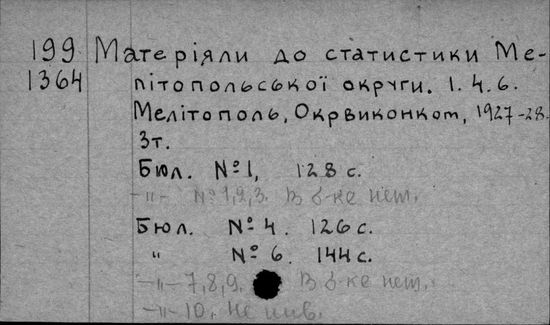 199 Матеріяли до статистики Ме-
1364 літопольської округи. 1. 4. 6.
Мелітополь, Окрвиконком, 1927-28.
3т.
Бюл. №1, 128 с.
-"- №1,2,3. В б-ке нет.
Бюл. №4. 126 с.
" №6. 144 с.
-"- 7,8,9. В б-ке нет.
-"- 10. Не